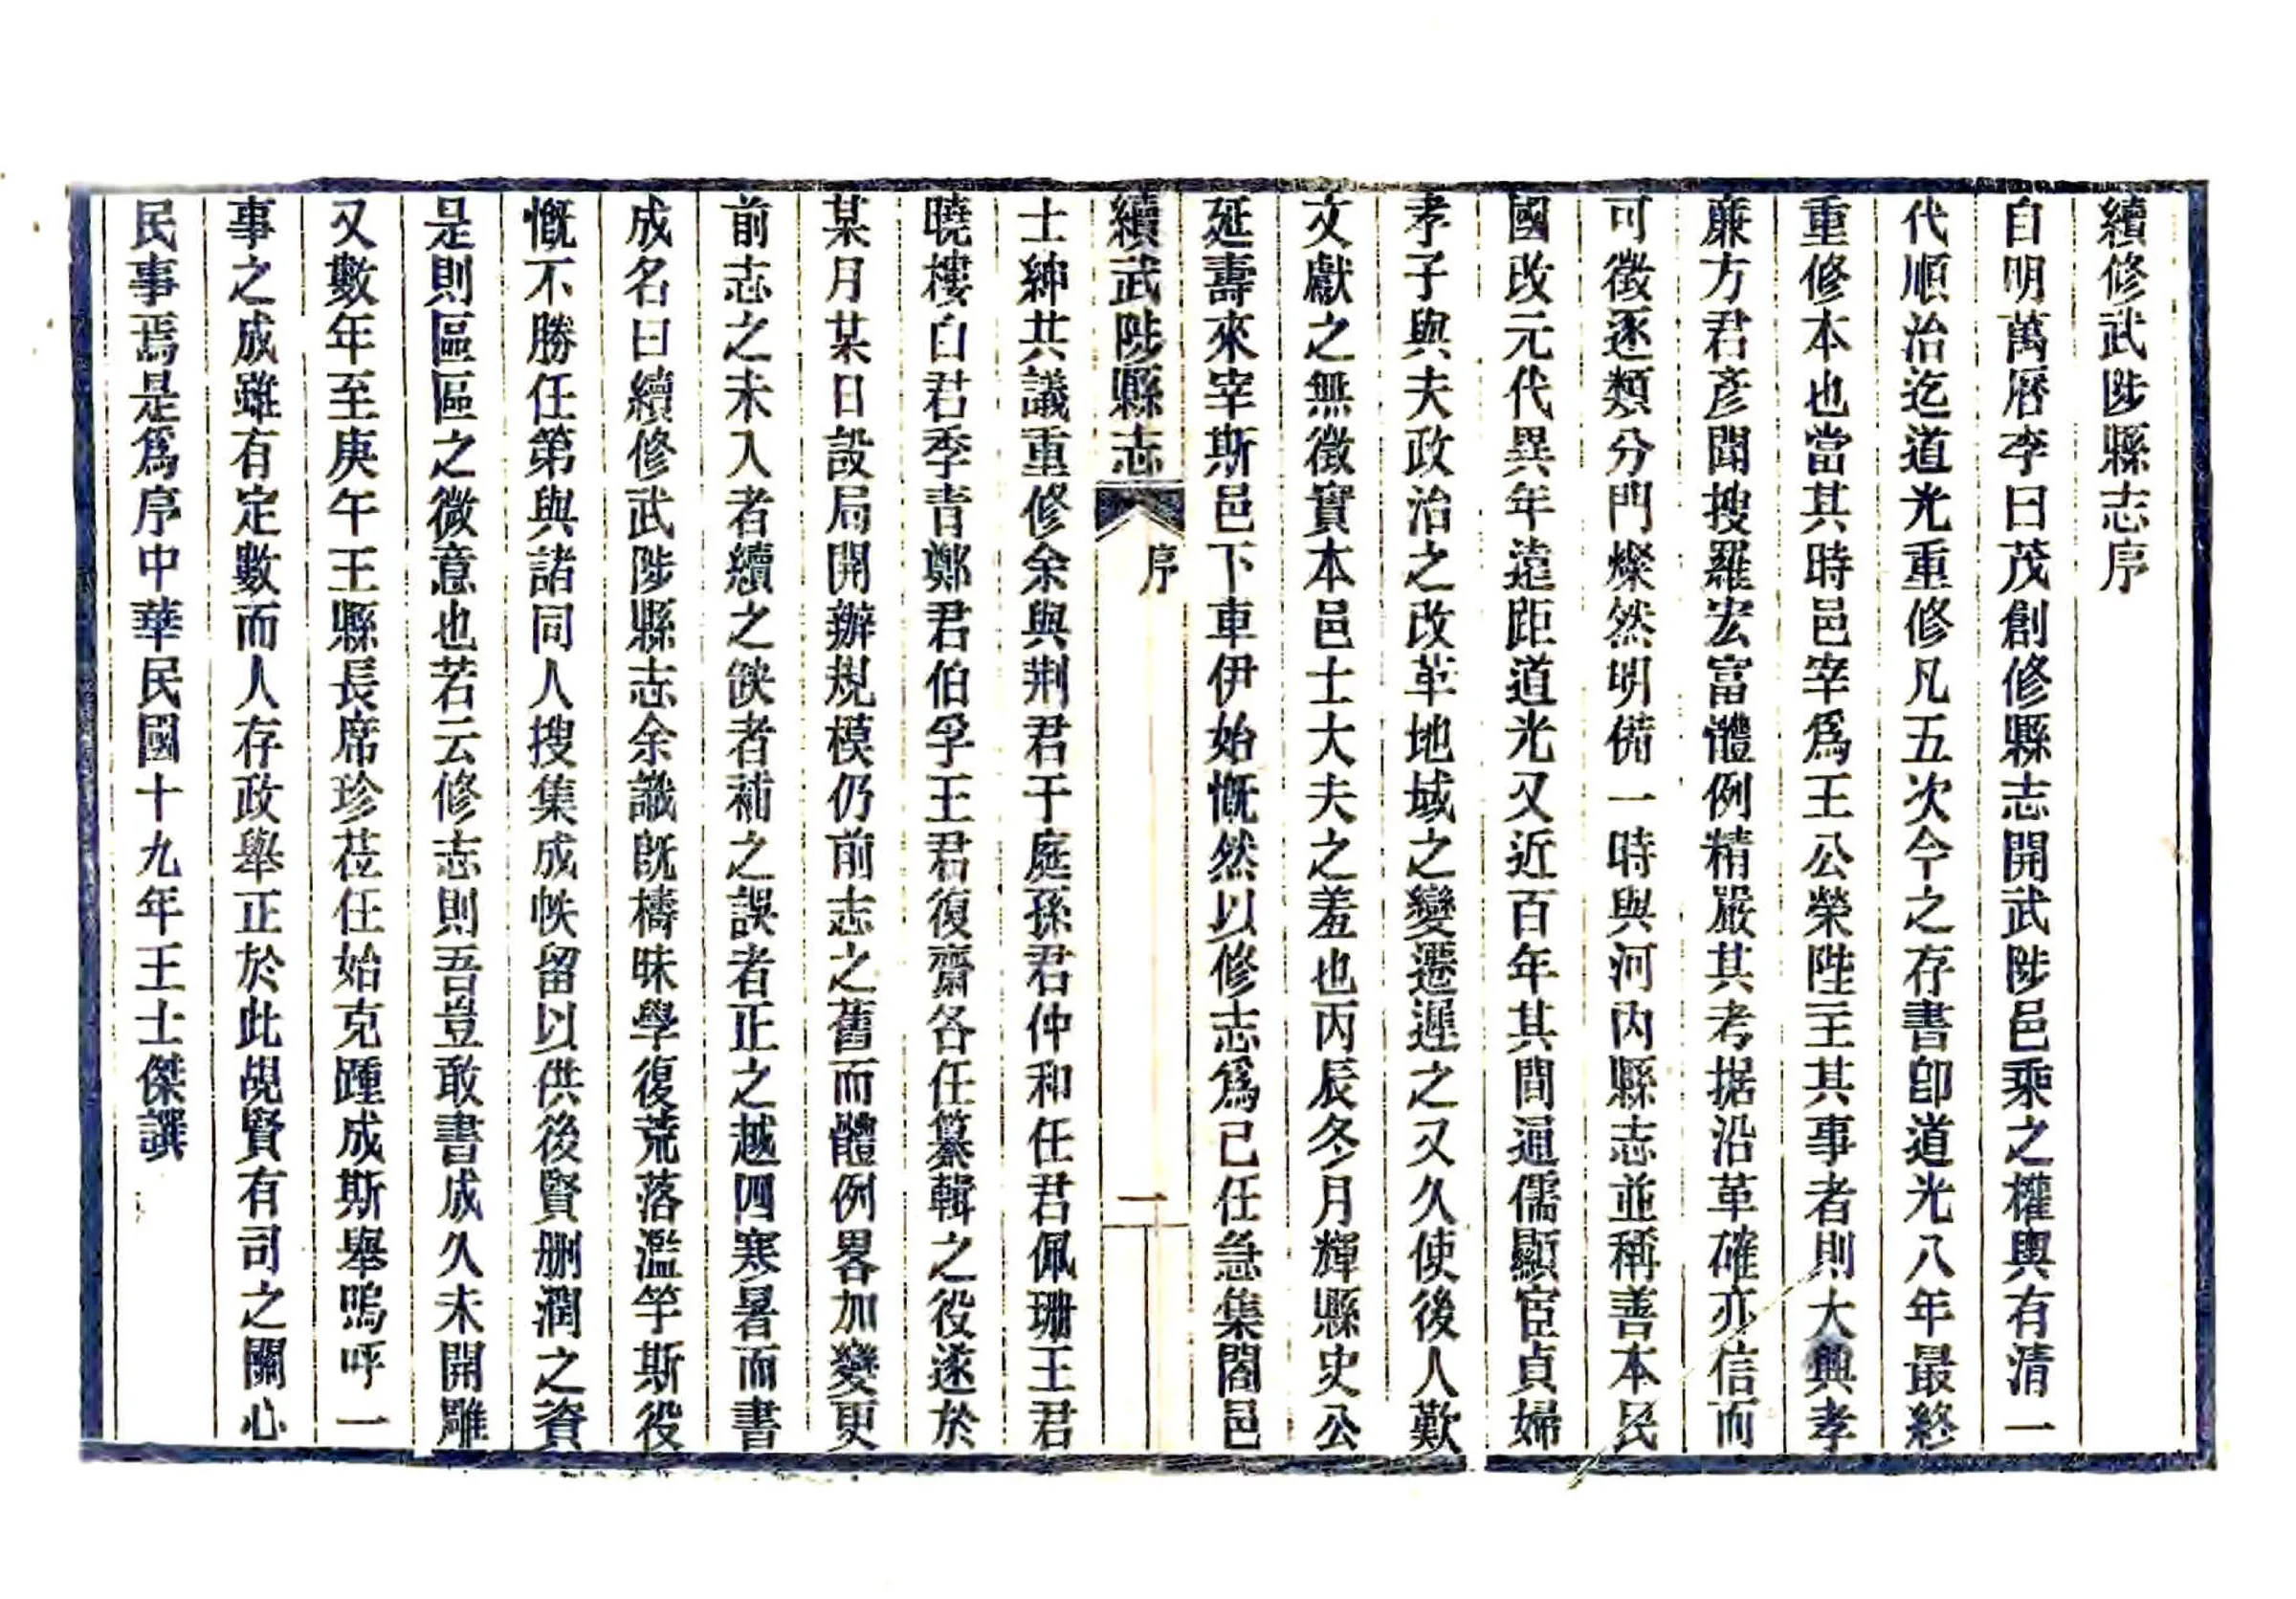 續修武陟縣志序
自明萬曆李曰茂創修縣志開武陟邑乘之權輿有清一
代順治迄道光重修凡五次今之存書卽道光八年最終
重修本也當其時邑宰爲王公榮陛主其事者則大興孝
廉方君彥聞搜羅宏富體例精嚴其考据沿革確亦信而
可徵逐類分門燦然明備一時與河內縣志並稱善本民
國改元代異年遠距道光又近百年其間通儒顯宦貞婦
孝子與夫政治之改革地域之變遷遲之又久使後人歎
文獻之無徵實本邑士大夫之羞也丙辰冬月輝縣史公
延壽來宰斯邑下車伊始慨然以修志爲已任急集閤邑
續武陟縣志 序 一
士紳共議重修余與荆君于庭孫君仲和任君佩珊王君
曉樓白君季青鄭君伯孚王君復齋各任纂輯之役遂於
某月某日設局開辦規模仍前志之舊而體例畧加變更
前志之未入者續之缺者補之誤者正之越四寒暑而書
成名曰續修武陟縣志余識旣檮昧學復荒落濫竽斯役
慨不勝任第與諸同人搜集成帙留以供後賢删潤之資
是則區區之微意也若云修志則吾豈敢書成久未開雕
又數年至庚午王縣長席珍莅任始克踵成斯舉嗚呼一
事之成雖有定數而人存政舉正於此覘賢有司之關心
民事焉是爲序中華民國十九年王士傑譔